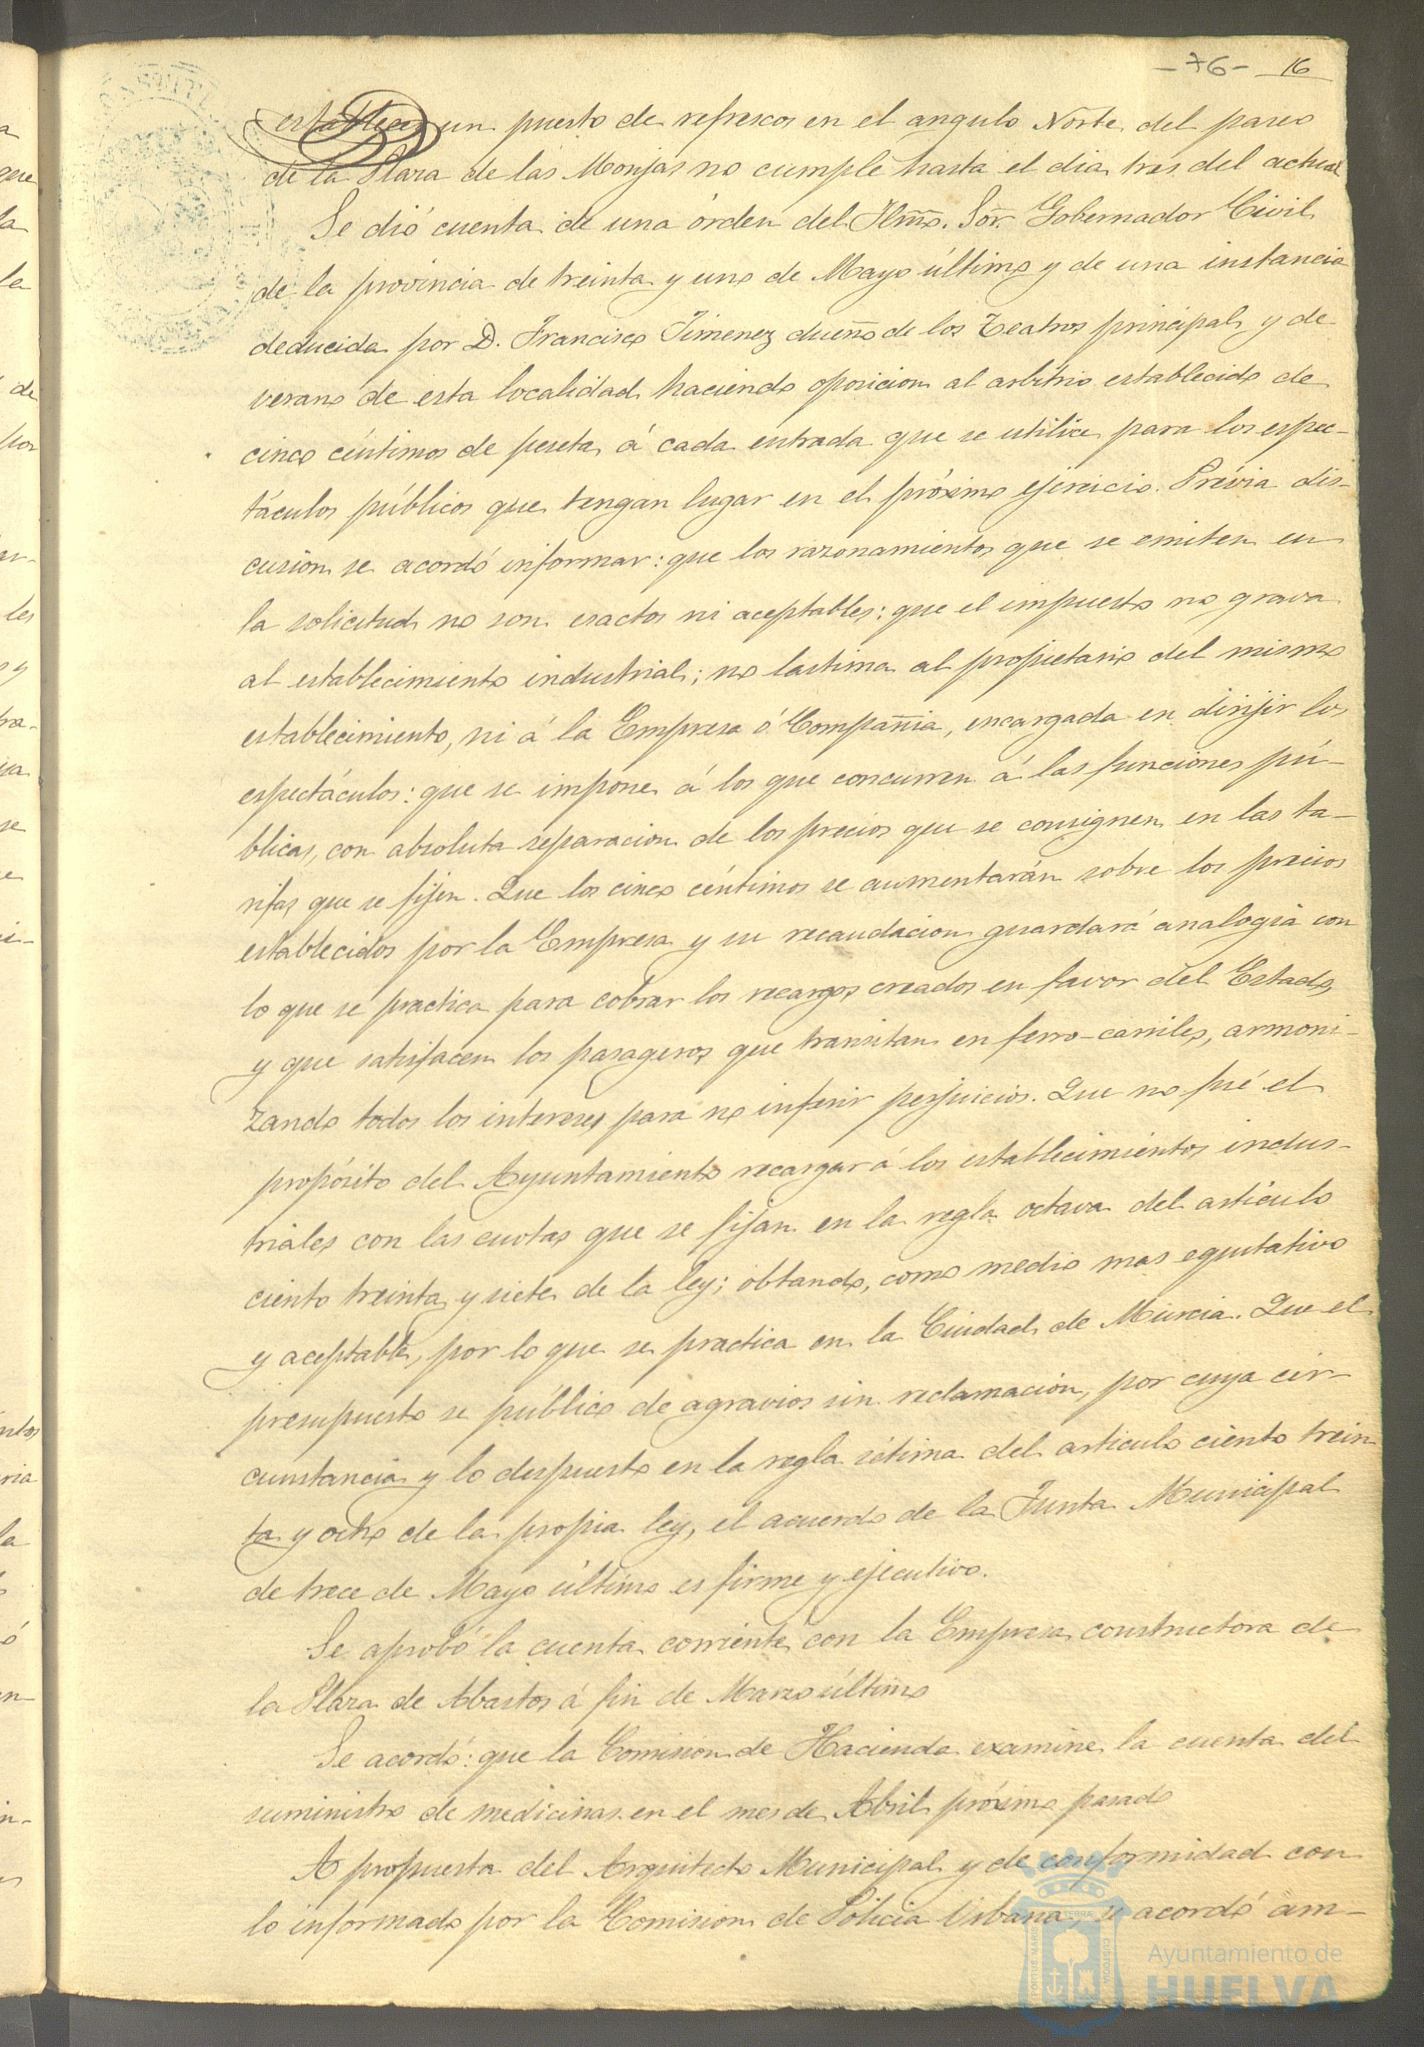 -76- 16
establecer un puesto de refrescos en el angulo Norte del paseo
de la Plaza de las Monjas no cumple hasta el dia tres del actual
Se dió cuenta de una órden del Ilmo. Sor. Gobernador Civil
de la provincia de treinta y uno de Mayo último y de una instancia
deducida por D. Francisco Jimenez dueño de los Teatros principal y de
verano de esta localidad haciendo oposicion al arbitrio establecido de
cinco céntimos de peseta á cada entrada que se utilice para los espec-
táculos públicos que tengan lugar en el próximo ejercicio. Prévia dis-
cusion se acordó informar: que los razonamientos que se emiten en
la solicitud no son esactos ni aceptables: que el impuesto no grava
al establecimiento industrial; no lastima al propietario del mismo
establecimiento, ni á la Empresa ó Compañia, encargada en dirijir los
espectáculos: que se impone á los que concurren á las funciones pú-
blicas, con absoluta separacion de los precios que se consignen en las ta-
rifas que se fijen. Que los cinco céntimos se aumentarán sobre los precios
establecidos por la Empresa y su recaudacion guardará analogia con
lo que se practica para cobrar los recargos creados en favor del Estado,
y que satisfacen los pasageros que transitan en ferro-carriles, armoni-
zando todos los intereses para no inferir perjuicios. Que no fué el
propósito del Ayuntamiento recargar á los establecimientos indus-
triales con las cuotas que se fijan en la regla octava del artículo
ciento treinta y siete de la ley; obtando, como medio mas equitativo
y aceptable, por lo que se practica en la Ciudad de Murcia. Que el
presupuesto se público de agravios sin reclamacion, por cuya cir-
cunstancia y lo dispuesto en la regla sétima del articulo ciento trein
ta y ocho de la propia ley, el acuerdo de la Junta Municipal
de trece de Mayo último es firme y ejecutivo.
Se aprobó la cuenta corriente con la Empresa constructora de
la Plaza de Abastos á fin de Marzo último
Se acordó: que la Comision de Hacienda examine la cuenta del
suministro de medicinas en el mes de Abril próximo pasado
A propuesta del Arquitecto Municipal y de conformidad con
lo informado por la Comision de Policia Urbana, se acordó am-
Ayuntamiento de
HUELVA